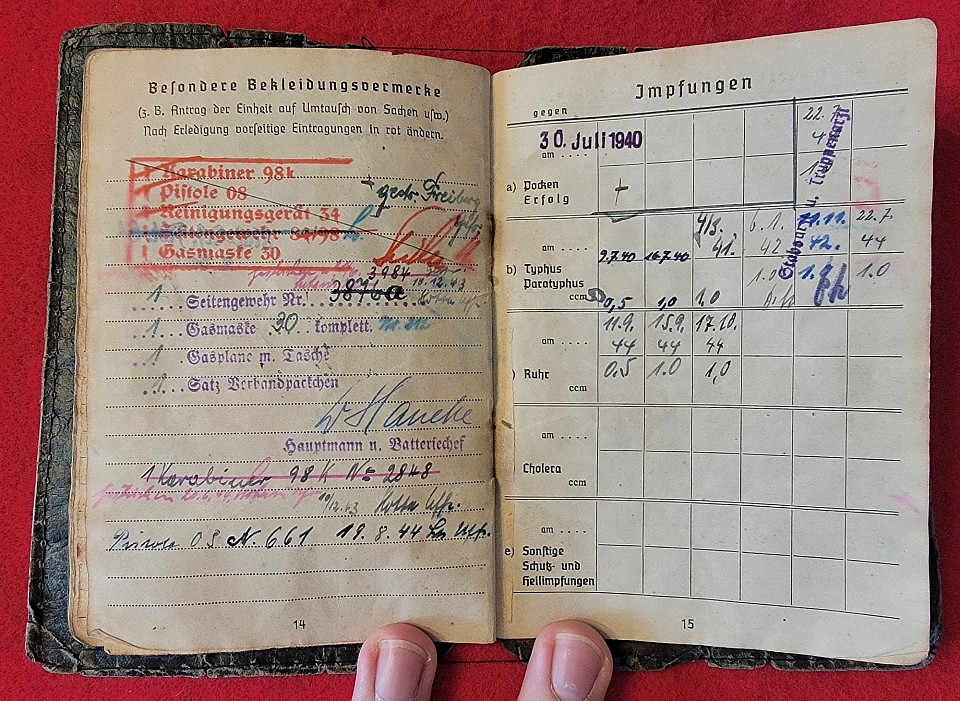 Besondere Bekleidungsvermerke
(z. B. Antrag der Einheit auf Umtausch von Sachen usw.)
Nach Erledigung vorseitige Eintragungen in rot ändern.
Karabiner 98k
Pistole 08
Reinigungsgerät 34
Seitengewehr 84/98
Gasmaske 30
gestr. Freiberg
3984
10.12.43
1 Seitengewehr Nr. 3876a Kotta Uffz.
1 Gasmaske 30 komplett.
1 Gasplane m. Tasche
1 Satz Verbandpäckchen
Hauptmann u. Batteriechef
1 Karabiner 98 K No 2848
10/12.43 Kotta Uffz.
Pistole 08 N. 661 19.8.44 Uffz.
14
Impfungen
gegen
30. Juli 1940
22.7.
am
a) Pocken
Erfolg
+
Stabsarzt u. Truppenarzt
am 2.7.40 16.7.40 4/3. 41. 6.1. 42 11.11. 42. 22.7. 44
b) Typhus
Paratyphus
ccm 0,5 1,0 1.0 1.0 1.0 1.0
11.9. 15.9. 17.10.
am 44 44 44
) Ruhr 0.5 1.0 1,0
ccm
am
Cholera
ccm
am
e) Sonstige
Schutz- und
Heilimpfungen
15